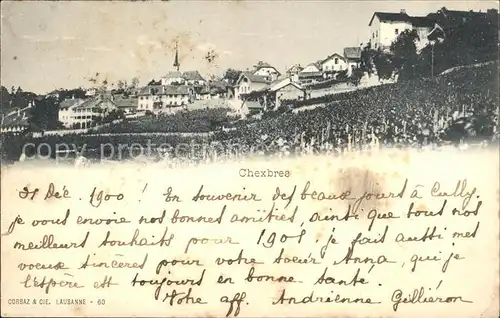 Chexbres
31 Déc. 1900 ! En souvenir des beaux jours à Cully,
je vous envoie nos bonnes amitiés, ainsi que tous nos
meilleurs souhaits pour 1901, je fais aussi mes
voeux sincères pour votre soeur Anna, qui, je
l'espère est toujours en bonne santé.
Votre aff. Andrienne Gilliéron
CORBAZ & CIE. LAUSANNE - 60